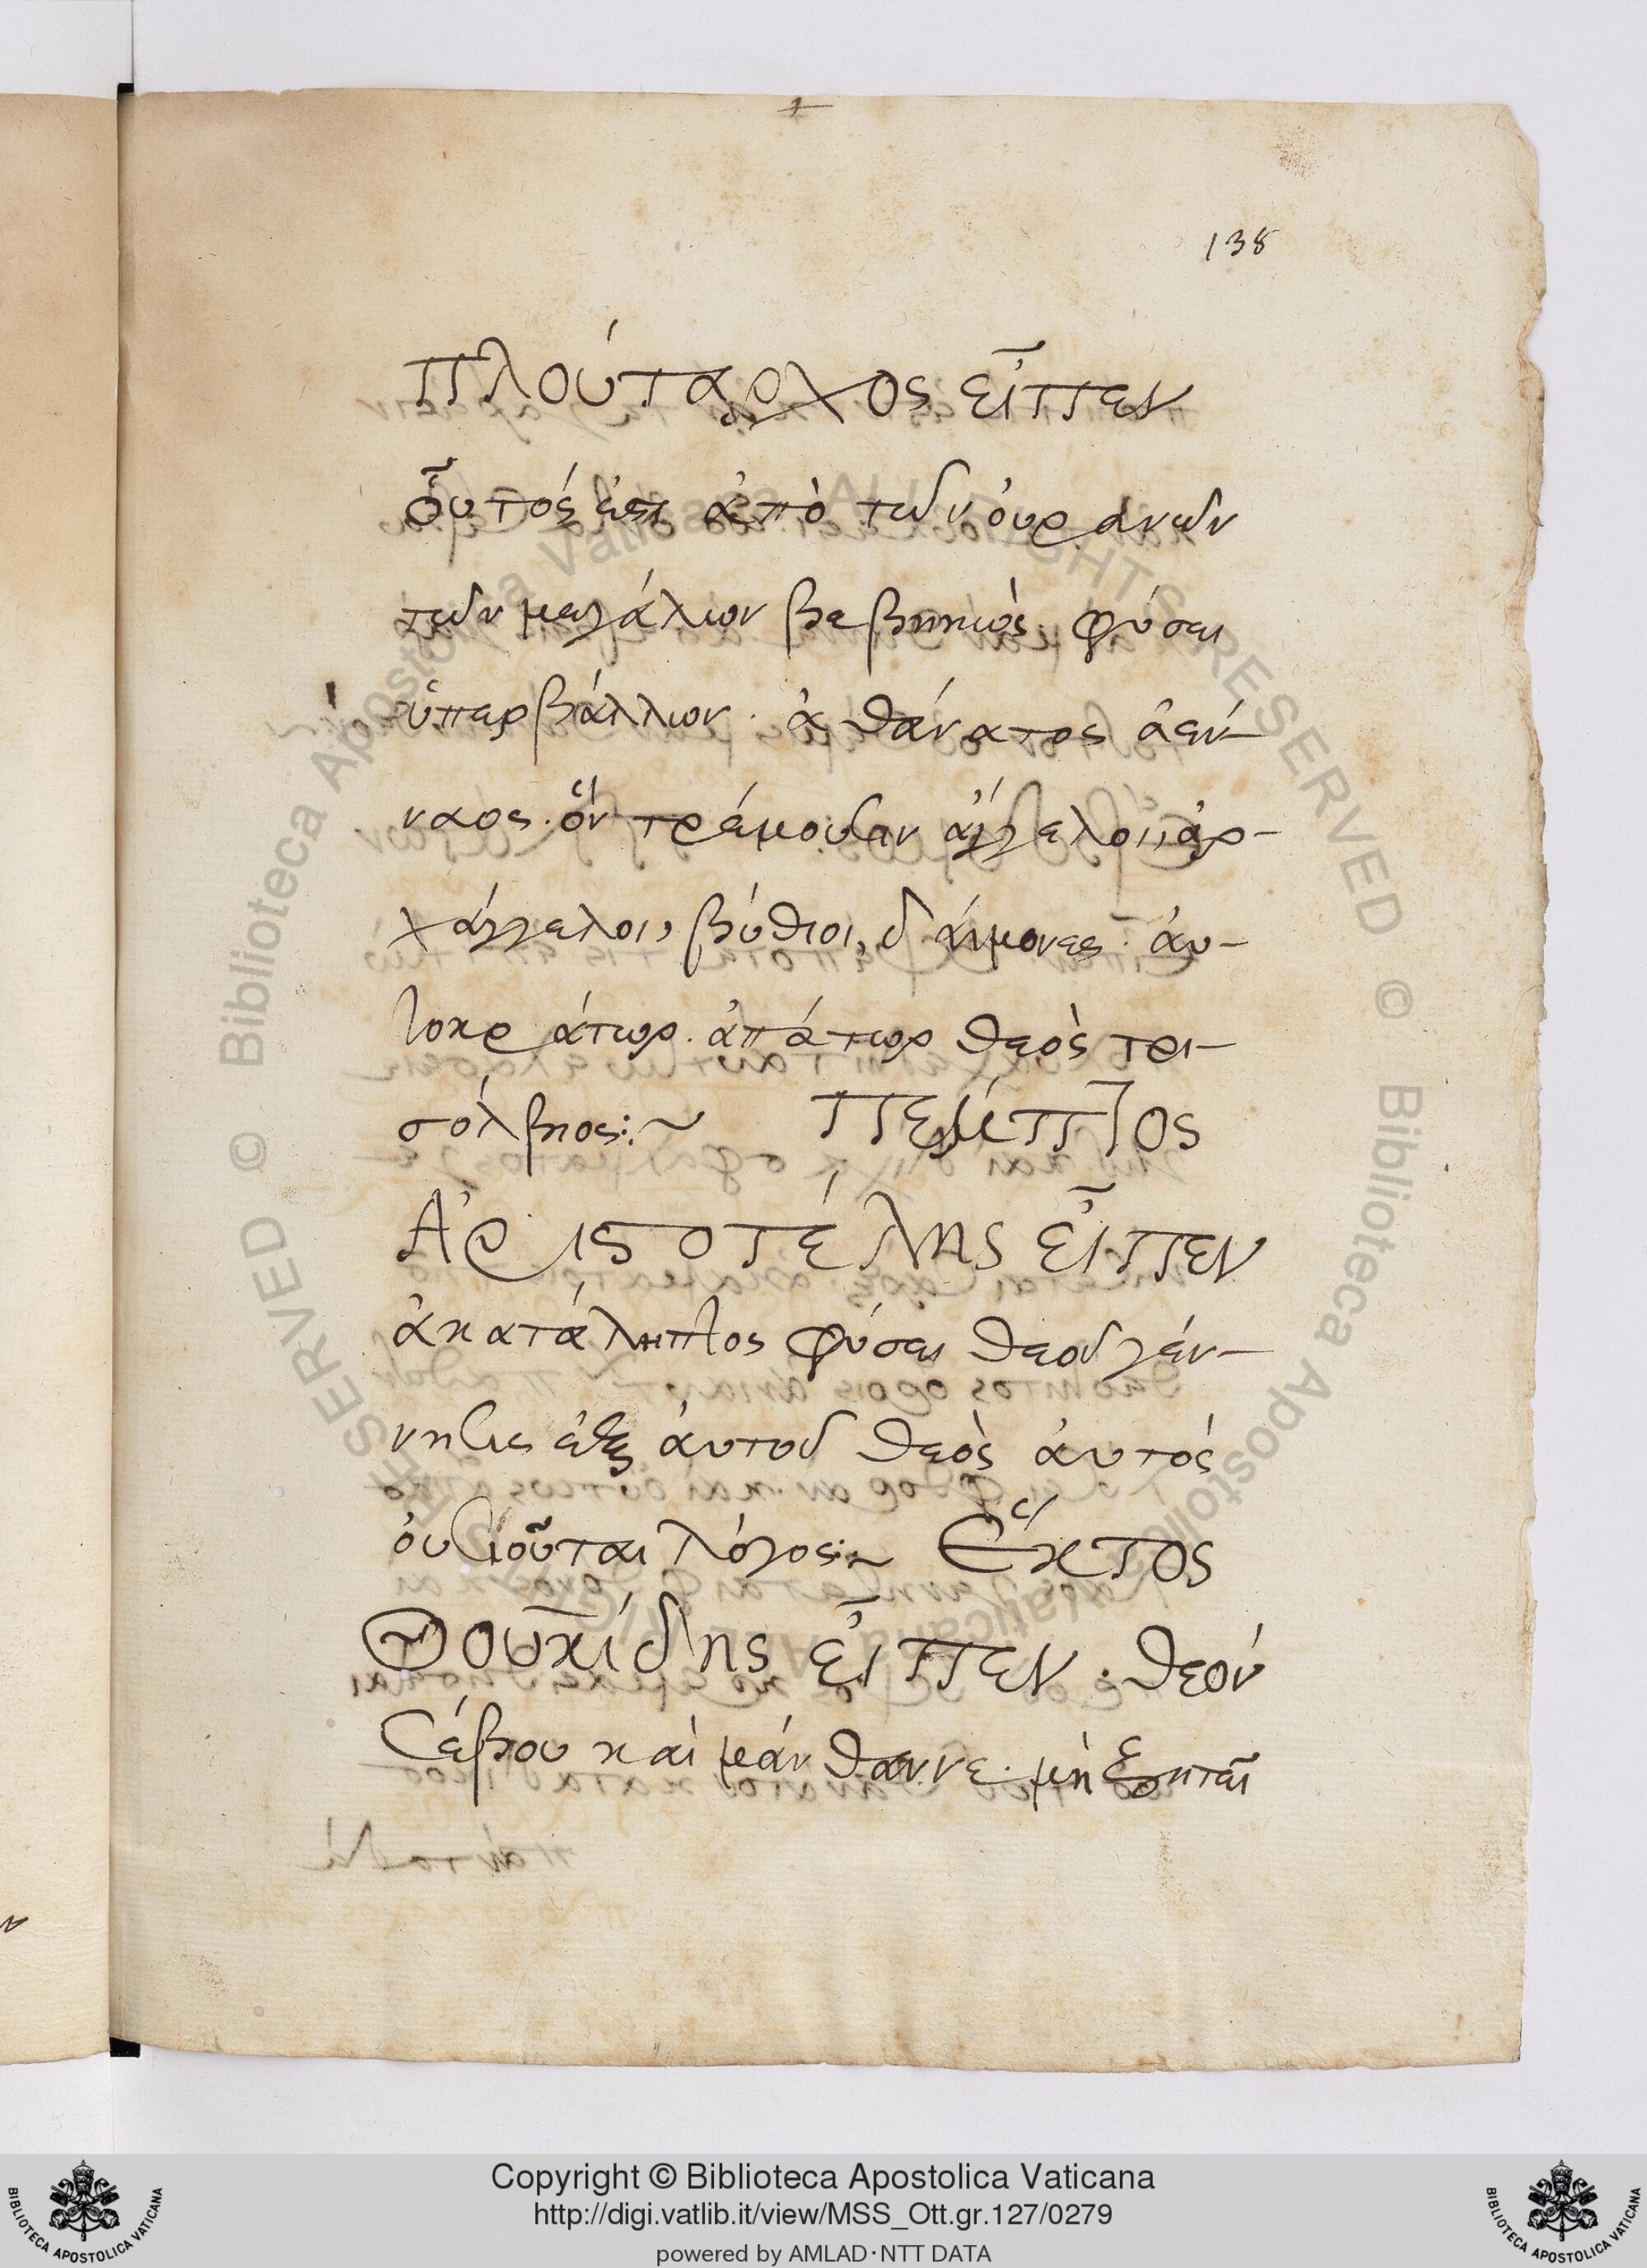 138
Πλούταρχος εἶπεν
οὗτός ἐστι ἀπὸ τῶν ὀυρανῶν
τῶν μεγάλων βεβηκὼς. φύσει
ὑπερβάλλων. ἀθάνατος ἀέν-
ναος. ὃν τρέμουσιν ἄγγελοι, ἀρ-
χάγγελοι, βύθιοι, δαίμονες. ἀυ-
τοκράτωρ. ἀπάτωρ θεὸς τρι-
σόλβιος:~ Πέμπτος
Ἀριστοτέλης εἶπεν
ἀκατάληπτος φύσει θεοῦ γέν-
νησις ἐξ ἀυτοῦ θεὸς ἀυτός
ὀυσιοῦται λόγος:~ Ἕκτος
Θουκίδης εἶπεν. θεόν
σέβου καὶ μάνθαννε. μὴ ζητεῖ
Copyright © Biblioteca Apostolica Vaticana
http://digi.vatlib.it/view/MSS_Ott.gr.127/0279
powered by AMLAD·NTT DATA
BIBLIOTECA APOSTOLICA VATICANA
BIBLIOTECA APOSTOLICA VATICANA